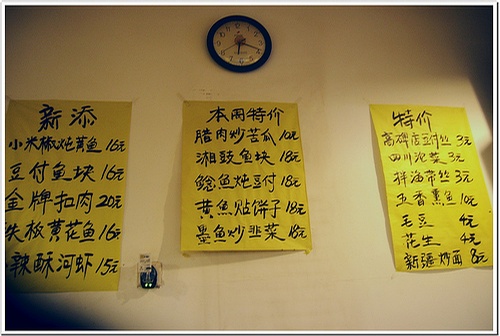 新添
小米椒炖黄鱼 16元
豆付鱼块 16元
金牌扣肉 20元
黄花鱼 16元
辣酥河虾 15元
本周特价
腊肉炒苦瓜 10元
湘豉鱼块 18元
鲶鱼炖豆付 18元
黄鱼饼子 18元
墨鱼炒韭菜 18元
特价
高碑店豆付丝 3元
四川泡菜 3元
拌海带丝 3元
五香熏鱼 10元
毛豆 4元
花生 4元
新疆炒面 8元